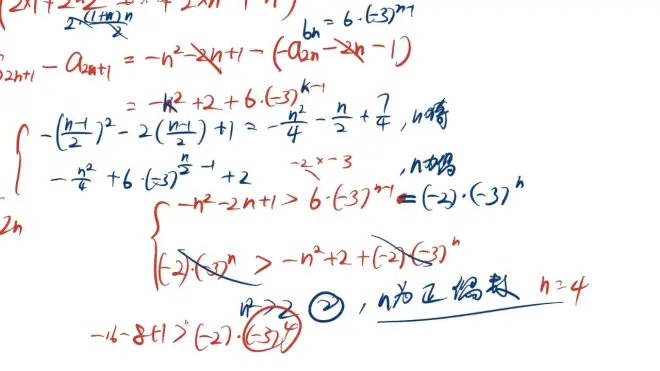 2·(1+n)n/2
bn = 6·(-3)^{n-1}
S_{2n+1} - a_{2n+1} = -n²-2n+1-(-a_{2n}-2n-1)
= -k²+2+6·(-3)^{k-1}
-(n-1/2)²-2(n-1/2)+1 = -n²/4-n/2+7/4, n奇
-n²/4+6·(-3)^{n/2-1}+2 , n为偶
-2×-3
2n
-n²-2n+1>6·(-3)^{n-1}=(-2)·(-3)^n
(-2)·(-3)^n>-n²+2+(-2)·(-3)^n
n²>2 ②, n为正偶数 n=4
-16-8+1>(-2)·(-3)^4